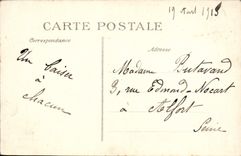 19 Avril 1915
CARTE POSTALE
Correspondance
Adresse
Un baiser
à
chacun
Madame Putavand
9, rue Edmond-Nocart
à Alfort
Seine